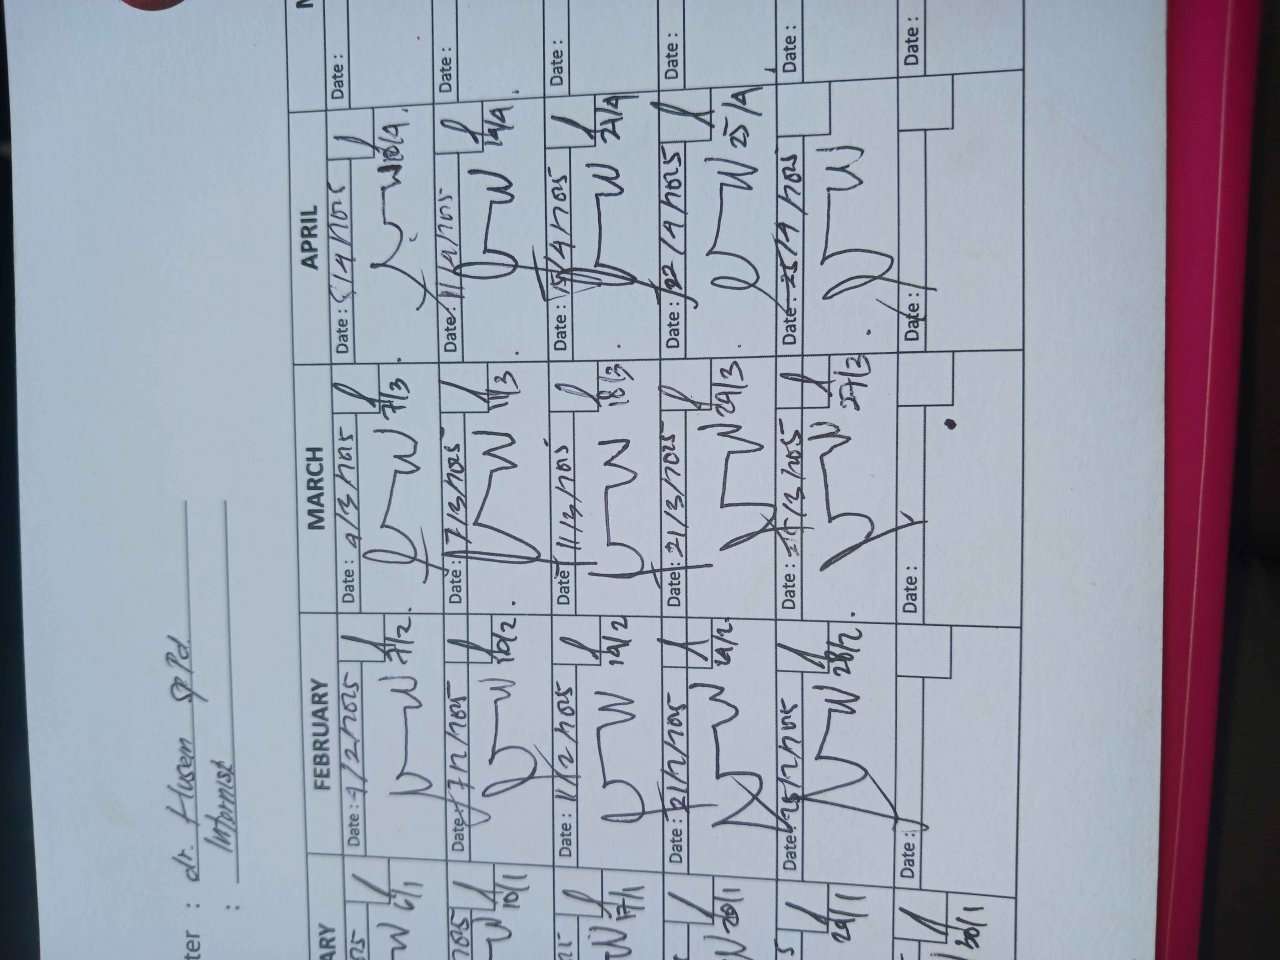 ter : dr. Husem sp Pd
: Informist
ARY FEBRUARY MARCH APRIL
25 Date : 4/2/2025 Date : 4/3/2025 Date : 8/4/2025 Date :
6/1 7/2. 7/3 10/4.
2025 Date : 7/2/2025 Date : 7/3/2025 Date : 11/4/2025 Date :
10/1 10/2 11/3 14/4
25 Date : 11/2/2025 Date : 11/3/2025 Date : 15/4/2025 Date :
17/1 14/2 18/3 21/4
Date : 21/2/2025 Date : 21/3/2025 Date : 22/4/2025 Date :
20/1 24/3 25/4
5 Date : 25/2/2025 Date : 25/3/2025 Date : 25/4/2025 Date :
24/1 28/2. 27/3
Date : Date : Date : Date :
30/1